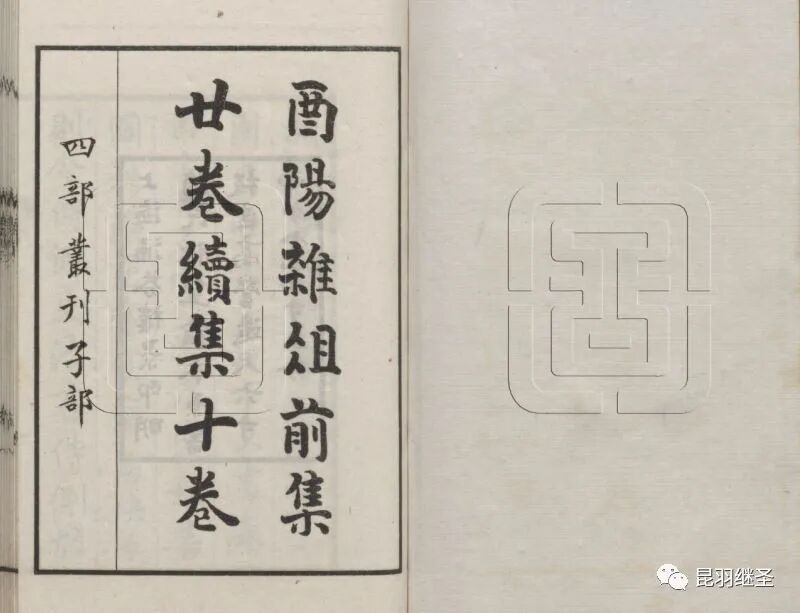 酉陽雜俎前集
廿卷續集十卷
四部叢刊子部
昆羽继圣